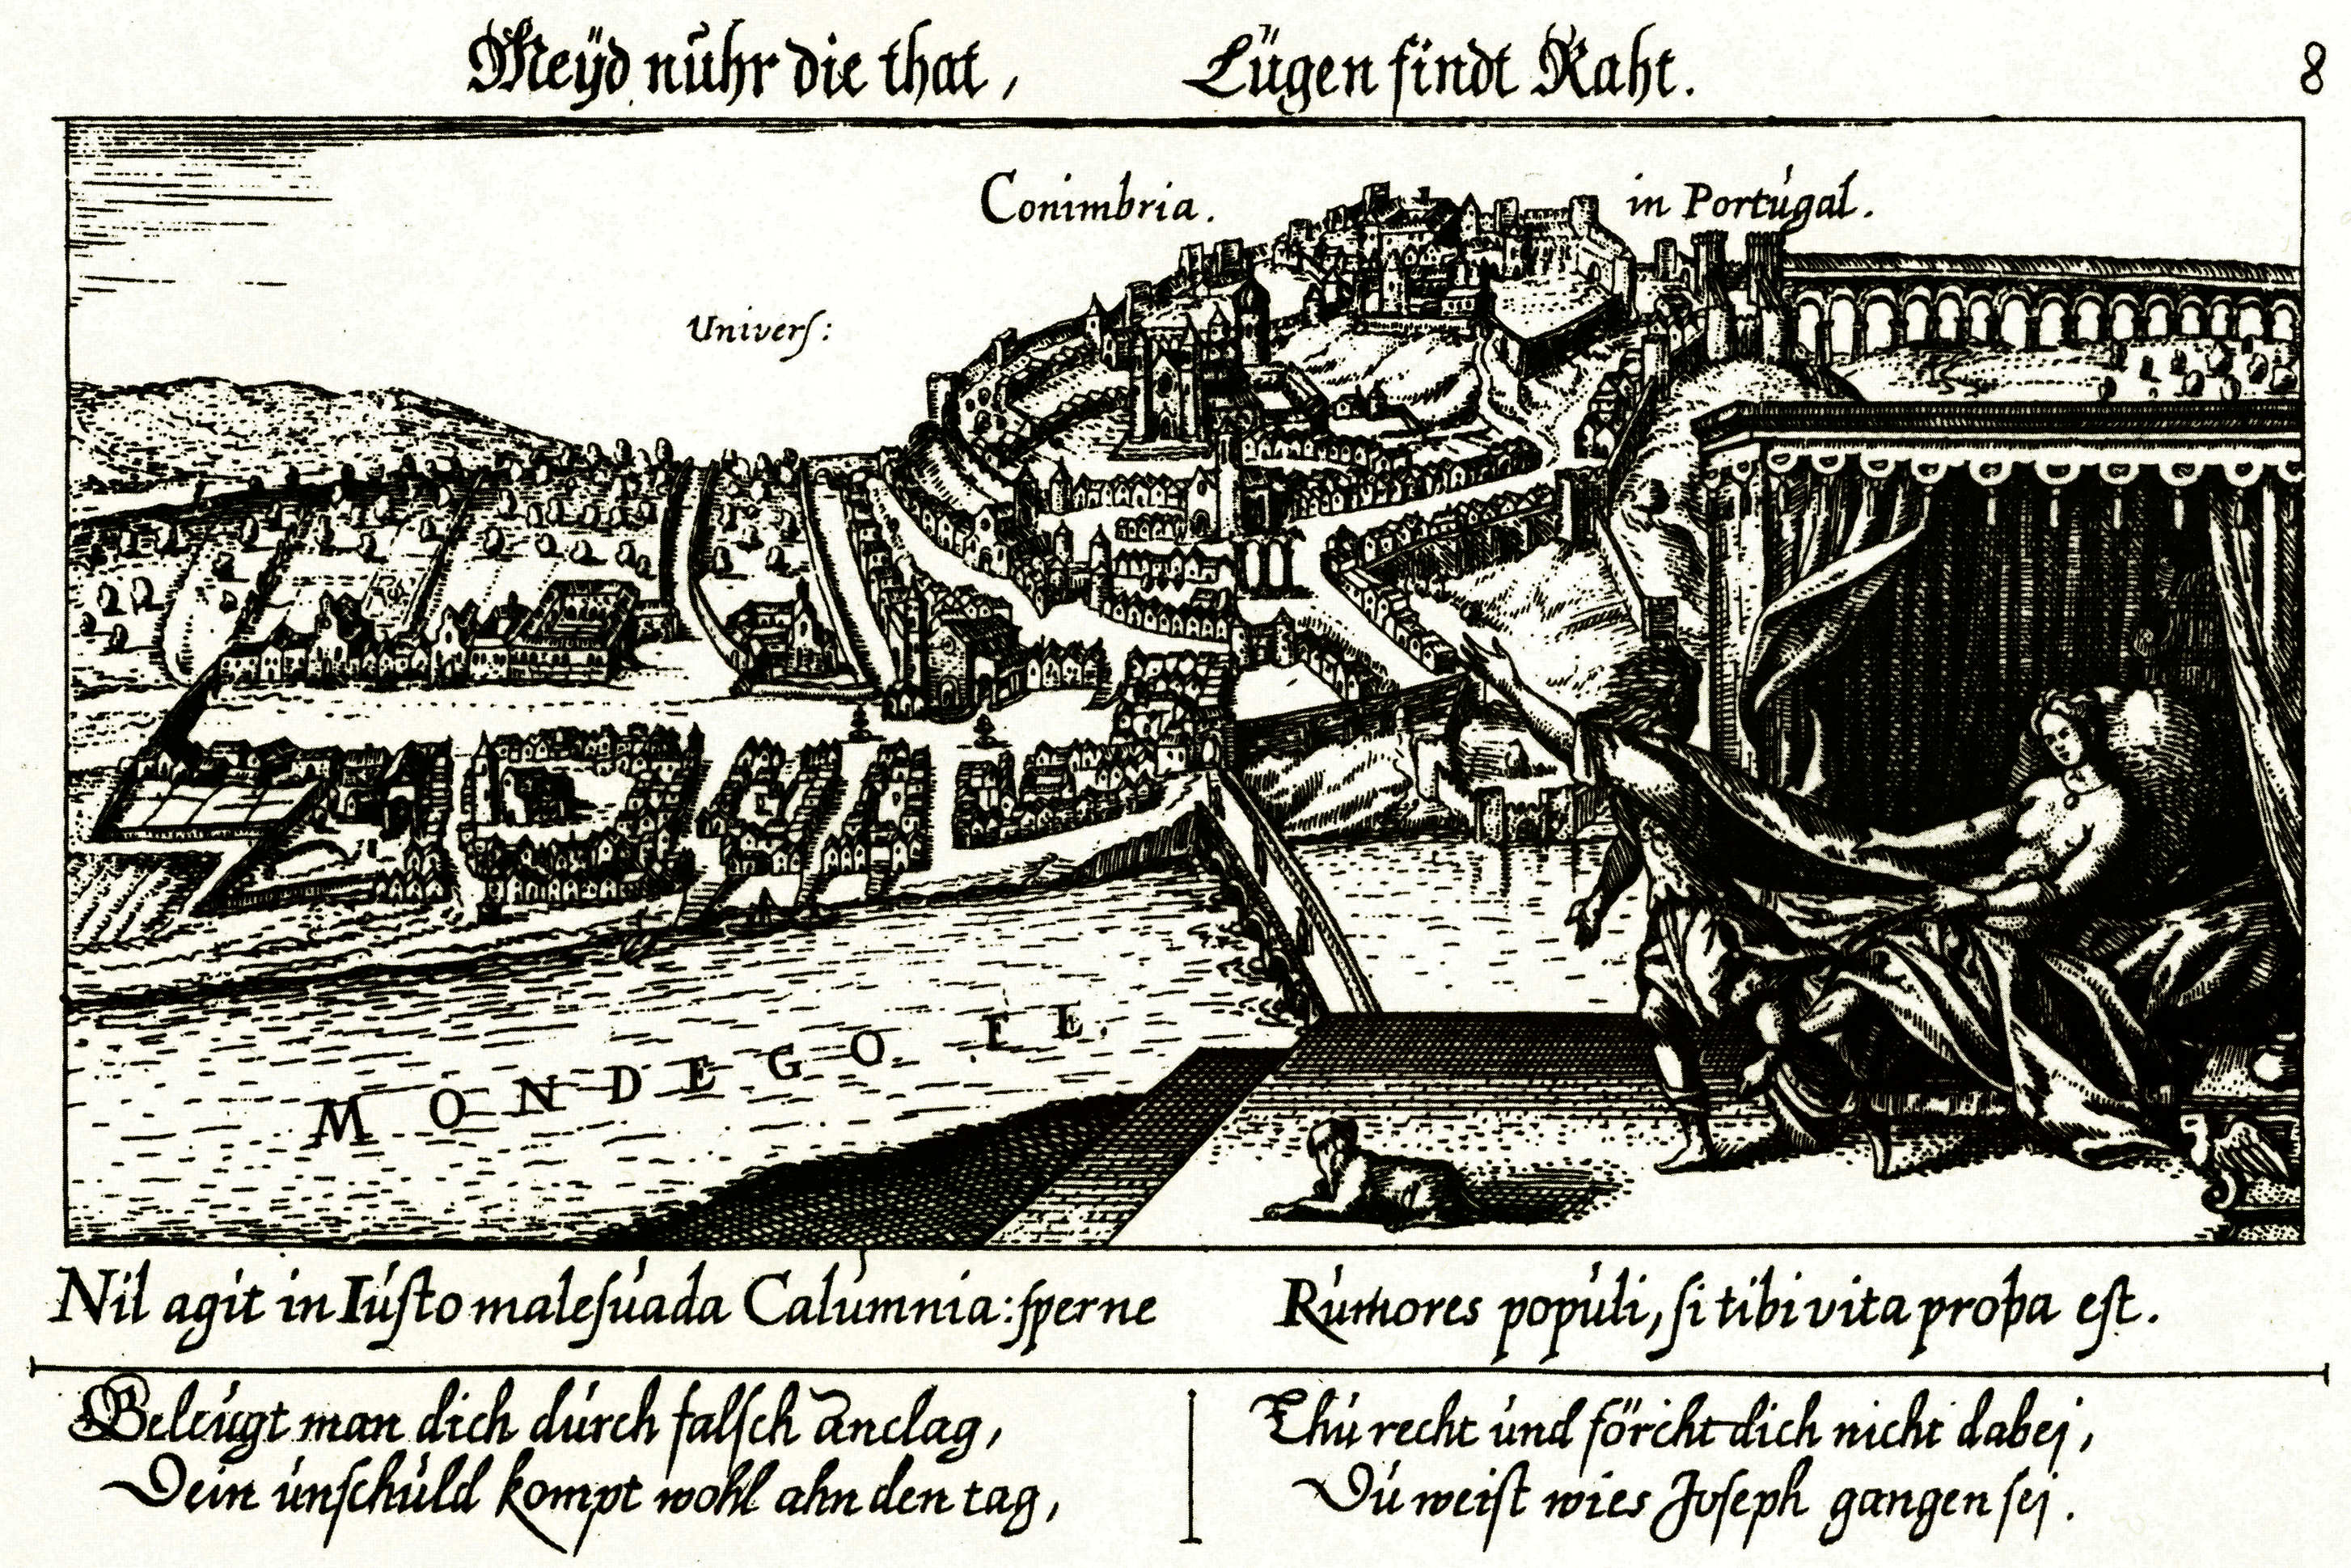 Meÿd nuhr die that, Lügen findt Raht. 8
Conimbria. in Portugal.
Univerſ:
MONDEGO FL.
Nil agit in Iuſto maleſuada Calumnia: ſperne Rumores populi, ſi tibi vita proba eſt.
Beleugt man dich durch falſch anclag,
Dein unſchuld kompt wohl ahn den tag,
Thu recht und förcht dich nicht dabej,
Du weiſt wies Joſeph gangen ſej.